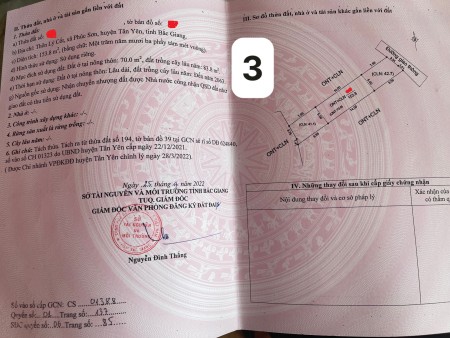 II. Thửa đất, nhà ở và tài sản khác gắn liền với đất
1. Thửa đất:
a) Thửa đất số: , tờ bản đồ số:
b) Địa chỉ: Thôn Lý Cốt, xã Phúc Sơn, huyện Tân Yên, tỉnh Bắc Giang.
c) Diện tích: 153.8 m², (bằng chữ: Một trăm năm mươi ba phẩy tám mét vuông).
d) Hình thức sử dụng: Sử dụng riêng.
đ) Mục đích sử dụng đất: Đất ở tại nông thôn: 70.0 m², đất trồng cây lâu năm: 83.8 m².
e) Thời hạn sử dụng: Đất ở tại nông thôn: Lâu dài, đất trồng cây lâu năm: Đến năm
g) Nguồn gốc sử dụng: Nhận chuyển nhượng đất được Nhà nước công nhận QSD đất như
giao đất có thu tiền sử dụng đất.
2. Nhà ở: -
3. Công trình xây dựng khác: -
4. Rừng sản xuất là rừng trồng: -
5. Cây lâu năm: -
6. Ghi chú: Tách thửa. Tách ra từ thửa đất số 194, tờ bản đồ 39 tại GCN sê ri số DĐ
vào sổ CH 01323 do UBND huyện Tân Yên cấp ngày 22/12/2021.
( Được Chi nhánh VPĐKĐĐ huyện Tân Yên chỉnh lý ngày 28/3/2022).
Ngày 25 tháng 4 năm 2022
SỞ TÀI NGUYÊN VÀ MÔI TRƯỜNG TỈNH BẮC GIANG
TUQ. GIÁM ĐỐC
GIÁM ĐỐC VĂN PHÒNG ĐĂNG KÝ ĐẤT ĐAI
SỞ
TÀI NGUYÊN
VÀ
MÔI TRƯỜNG
Nguyễn Đình Thông
Số vào sổ cấp GCN: CS 01388
Quyển số: 01 Trang số: 177
Trang số: 85
III. Sơ đồ thửa đất, nhà ở và tài sản khác gắn liền với đất
3
Đường giao thông
ONT+CLN
(CLN: 42.7)
ONT+CLN
153.8
ONT+CLN
IV. Những thay đổi sau khi cấp giấy chứng nhận
Nội dung thay đổi và cơ sở pháp lý
Xác nhận của
có thẩm q